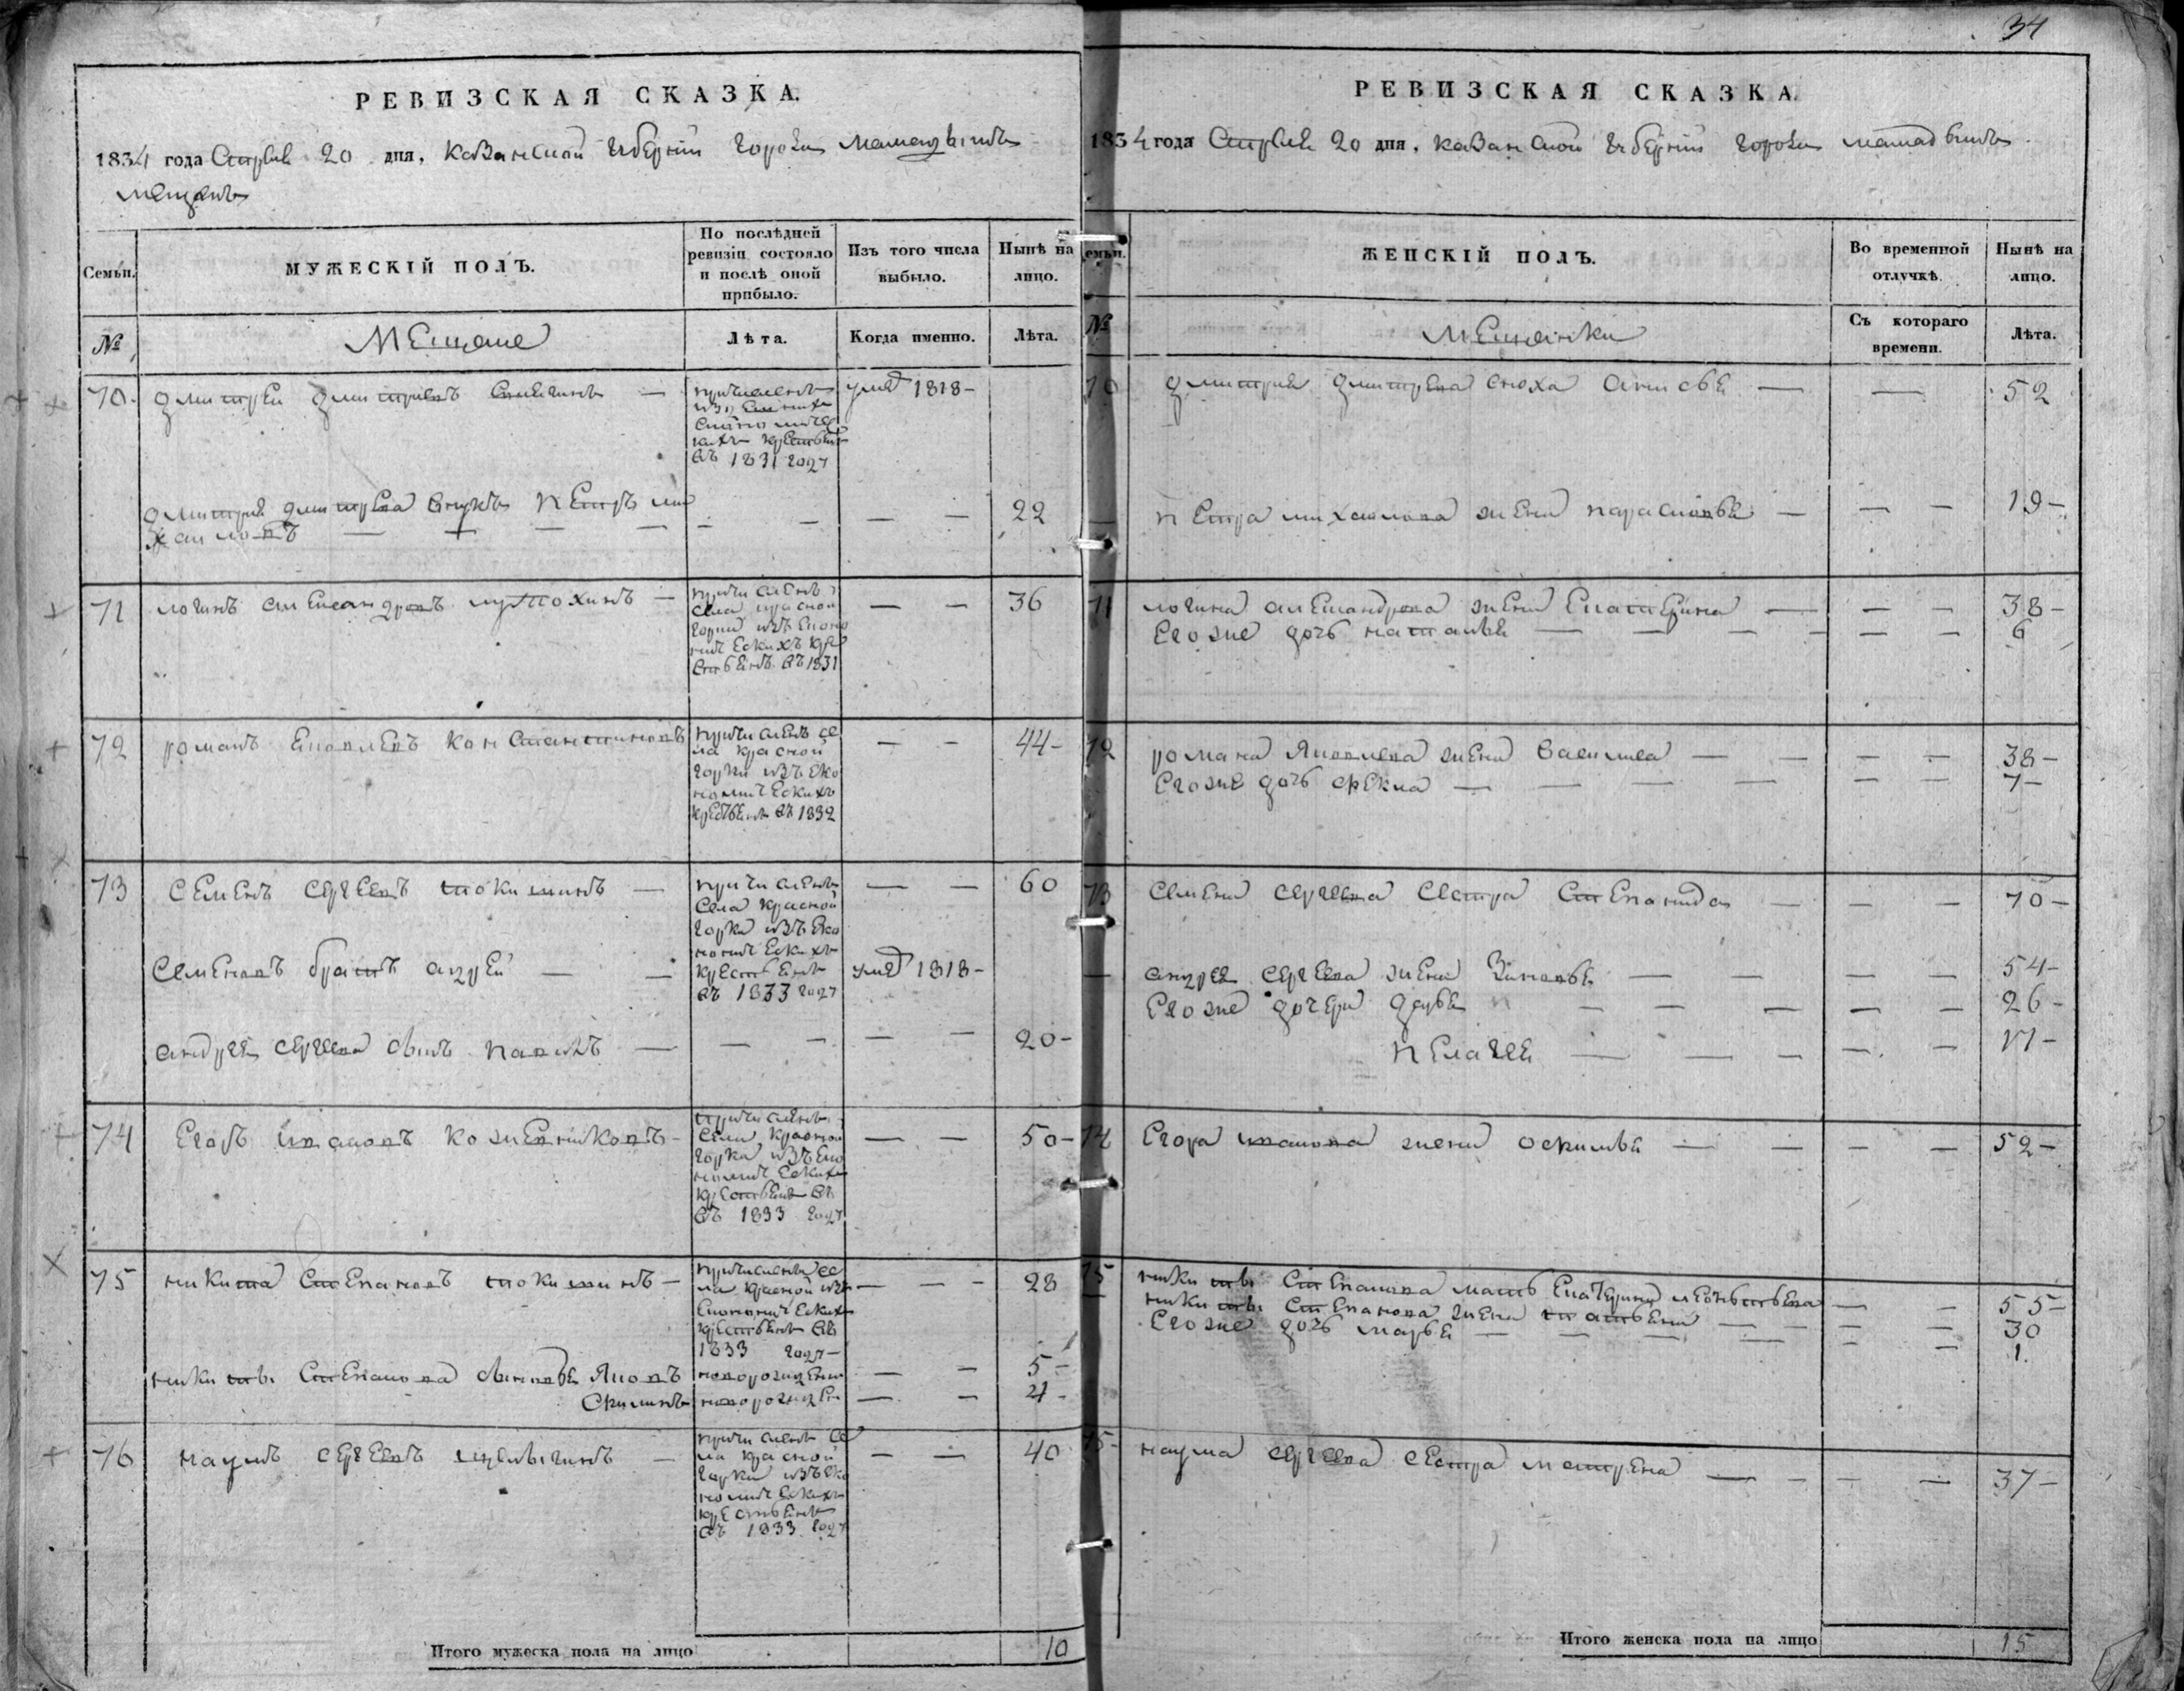 34
РЕВИЗСКАЯ СКАЗКА.
1834 года Апреля 20 дня, Казанской губернии города Мамадышъ
мещанъ
Семьи.
МУЖЕСКІЙ ПОЛЪ.
По послѣдней
ревизіи состояло
и послѣ оной
прибыло.
Изъ того числа
выбыло.
Нынѣ на
лицо.
№
Мещане
Лѣта.
Когда именно.
Лѣта.
70. Дмитрей Дмитриевъ —
причисленъ
крестьянъ
въ 1831 году
умѣ 1818 –
Дмитрия Дмитрева внукъ Петръ Ми
хаиловъ — — — — — — — — 22
71 логинъ александровъ лутохинъ —
причисленъ
села красной
горки изъ эконо
мическихъ кре
стьянъ въ 1831
— — 36
72 романъ Яковлевъ Константиновъ
причисленъ се
ла красной
горки изъ эко
номическихъ
крестьянъ въ 1832
— — 44 –
73 Семенъ Сергеевъ токишинъ —
причисленъ
села красной
горки изъ эко
номическихъ
крестьянъ
въ 1833 году
— — 60
Семеновъ братъ андрей — — умѣ 1818 –
андрея сергеева сынъ павилъ — — — — — 20 –
74 Егоръ ивановъ кожевниковъ –
причисленъ
села красной
горки изъ эко
номическихъ
крестьянъ въ
въ 1833 году
— — 50 –
75 никита Степановъ токишинъ –
причисленъ се
ла красной изъ
економическихъ
крестьянъ въ
1833 году –
— — – 28
никиты Степанова сыновья Яковъ новорожден — — 5 –
новорожден — — 4 –
76 наумъ сергеевъ —
причисленъ се
ла красной
горки изъ эко
номическихъ
крестьянъ
въ 1833 году
— — 40
Итого мужеска пола на лицо 10
РЕВИЗСКАЯ СКАЗКА.
1834 года Апреля 20 дня, Казанской губернии города мамадышъ
Семьи.
ЖЕНСКІЙ ПОЛЪ.
Во временной
отлучкѣ.
Нынѣ на
лицо.
№
Мещанки
Съ котораго
времени.
Лѣта.
70 Дмитрия Дмитрева сноха анисья — — 52
— Петра михаилова жена парасковья — — — 19 –
71 логина александрова жена Екатерина — — — 38 –
Егоже дочь наталья — — — — — — 6
72 романа Яковлева жена Василиса — — — — 38 –
Егоже дочь фекла — — — — — — 7 –
73 Семена сергеева сестра Степанида — — — 70 –
— андрея сергеева жена Зиновья — — — — 54 –
Егоже дочери дарья — — — — — 26 –
пелагея — — — — — 17 –
74 Егора иванова жена — — — — 52 –
75 никиты Степанова мать Екатерина леонтьева — — 55 –
никиты Степанова жена татьяна — — — — 30
Егоже дочь марья — — — — — — 1.
76 наума сергеева сестра матрена — — — — 37 –
Итого женска пола на лицо 15